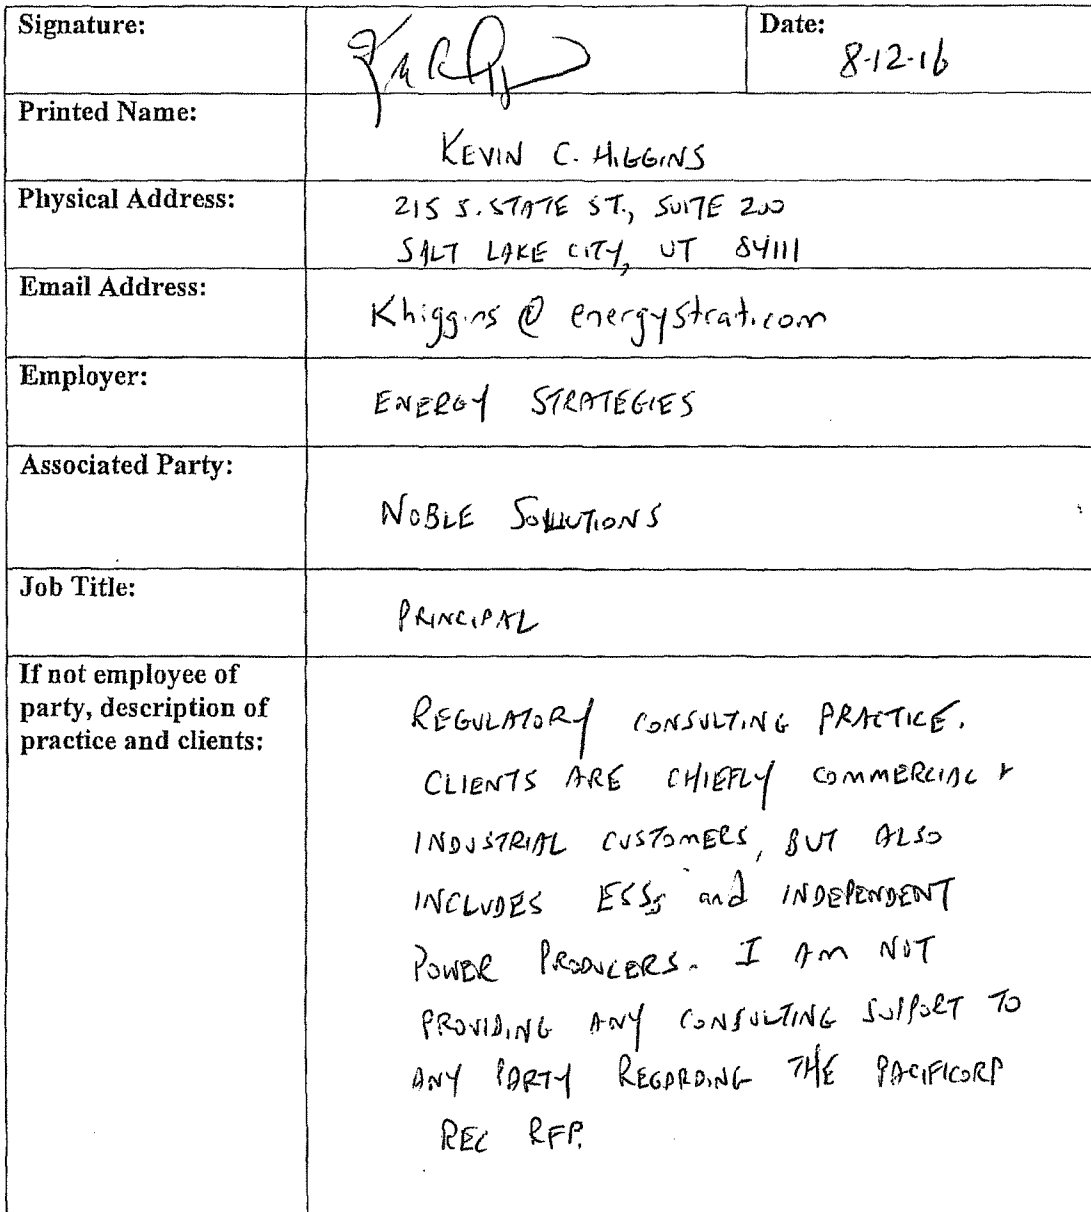 Signature:
Date:
8-12-16
Printed Name:
KEVIN C. HIGGINS
Physical Address:
215 S. STATE ST., SUITE 200
SALT LAKE CITY, UT 84111
Email Address:
Khiggins @ energystrat.com
Employer:
ENERGY STRATEGIES
Associated Party:
NOBLE SOLUTIONS
Job Title:
PRINCIPAL
If not employee of
party, description of
practice and clients:
REGULATORY CONSULTING PRACTICE.
CLIENTS ARE CHIEFLY COMMERCIAL &
INDUSTRIAL CUSTOMERS, BUT ALSO
INCLUDES ESSs and INDEPENDENT
POWER PRODUCERS. I AM NOT
PROVIDING ANY CONSULTING SUPPORT TO
ANY PARTY REGARDING THE PACIFICORP
REC RFP.